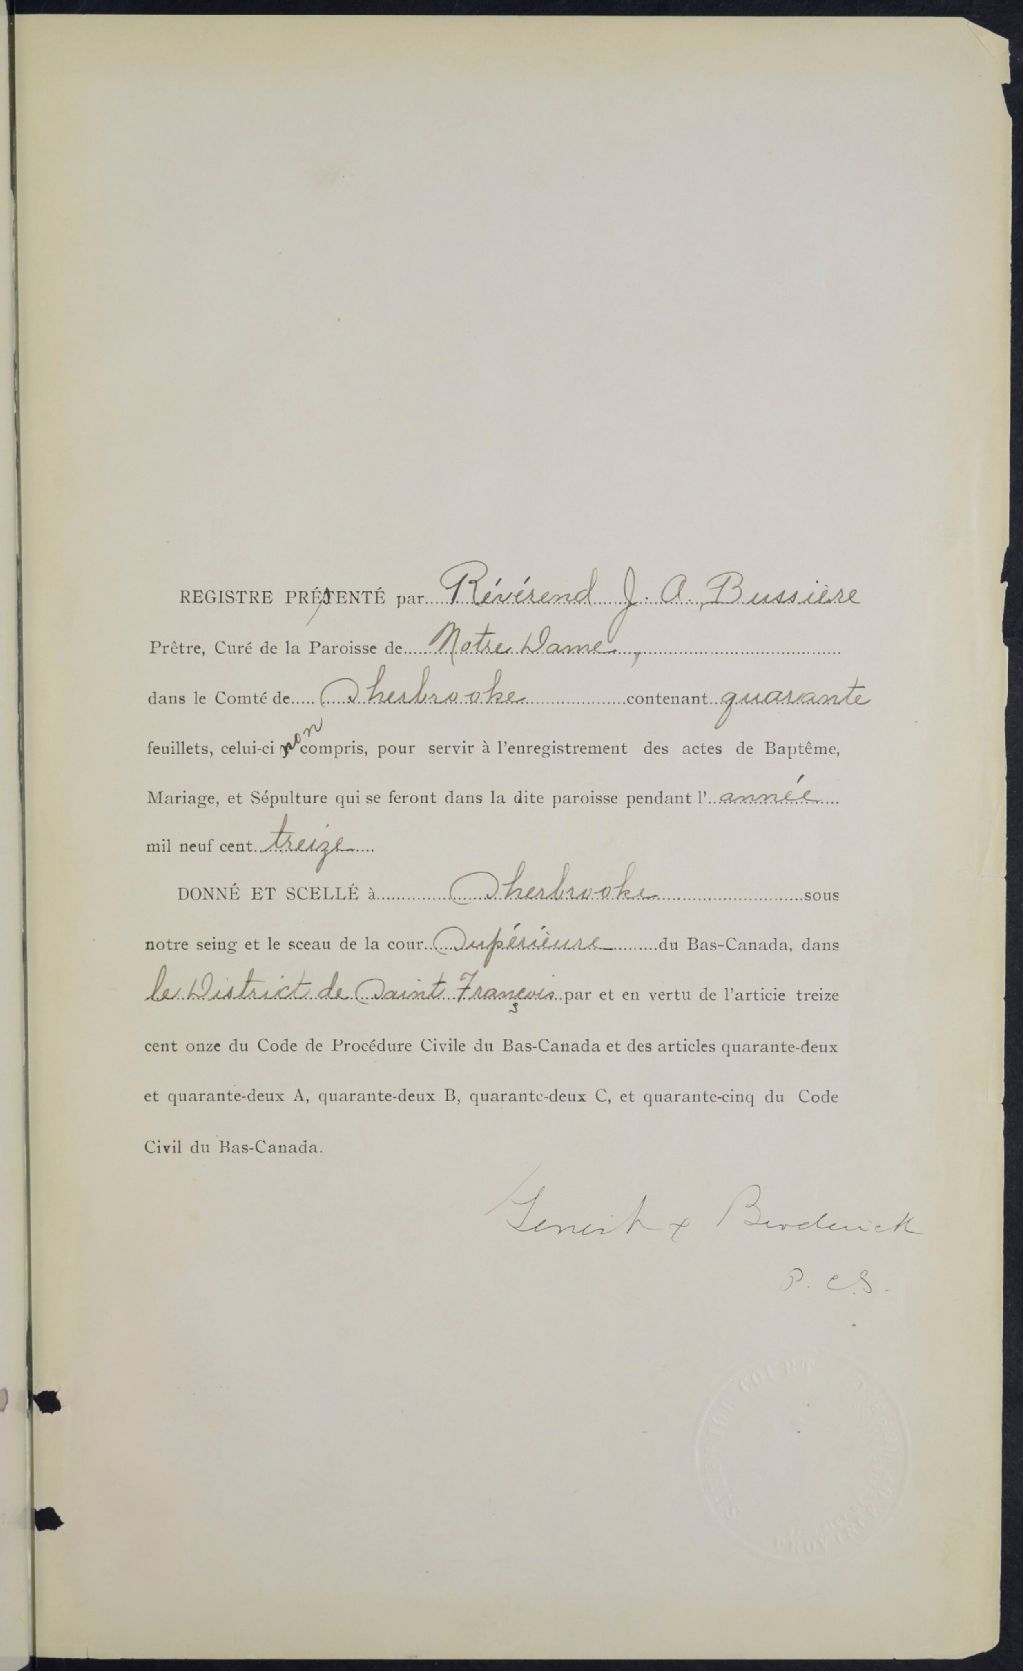 REGISTRE PRÉSENTÉ par Révérend J. A. Bussière
Prêtre, Curé de la Paroisse de Notre Dame,
dans le Comté de Sherbrooke contenant quarante
feuillets, celui-ci non compris, pour servir à l'enregistrement des actes de Baptême,
Mariage, et Sépulture qui se feront dans la dite paroisse pendant l'année
mil neuf cent treize
DONNÉ ET SCELLÉ à Sherbrooke sous
notre seing et le sceau de la cour Supérieure du Bas-Canada, dans
le District de Saint François par et en vertu de l'articie treize
cent onze du Code de Procédure Civile du Bas-Canada et des articles quarante-deux
et quarante-deux A, quarante-deux B, quarante-deux C, et quarante-cinq du Code
Civil du Bas-Canada.
Genest & Broderick
P. C.S.
SUPERIOR COURT
PROVINCE OF